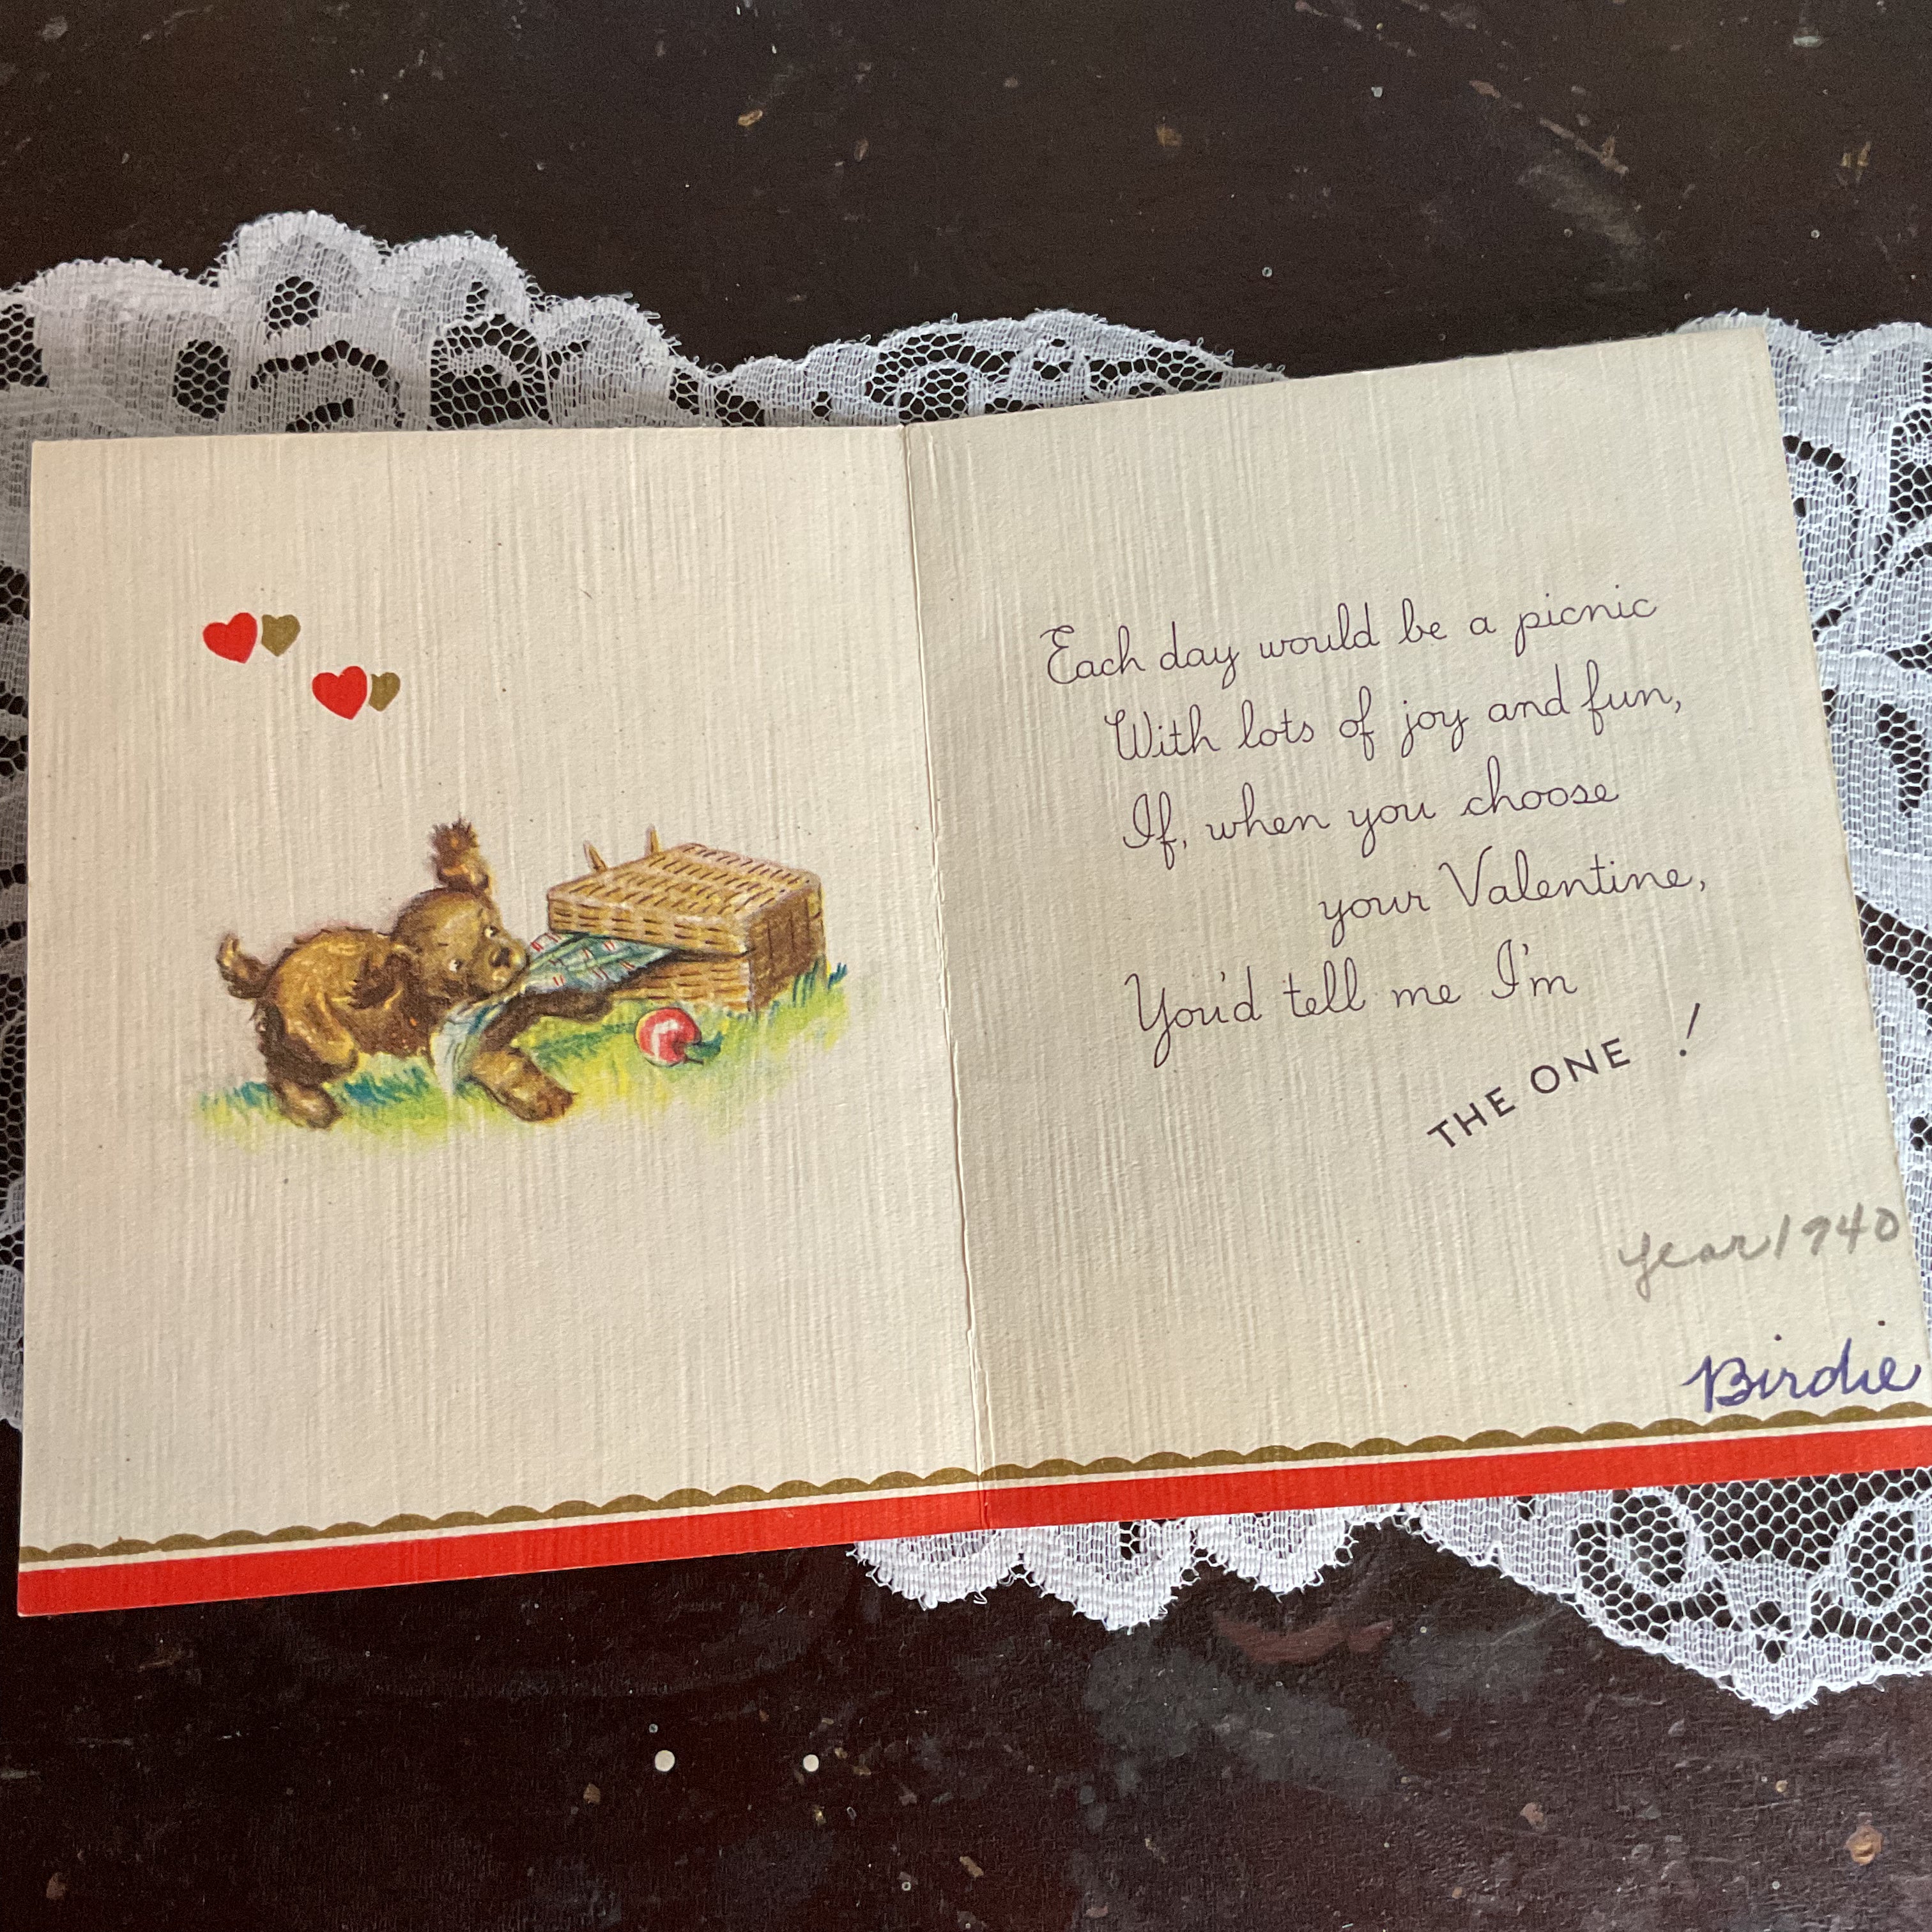 Each day would be a picnic
With lots of joy and fun,
If, when you choose
your Valentine,
You'd tell me I'm
THE ONE !
year 1940
Birdie